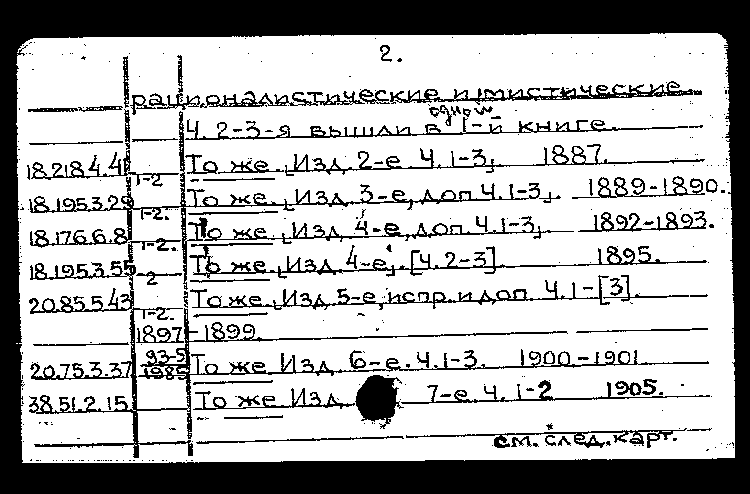 2.
рационалистические и мистические
одной
Ч. 2-3-я вышли в 1-й книге.
18.218.4.41 То же. [Изд. 2-е. Ч. 1-3]. 1887.
1-2
18.195.3.29 То же. [Изд. 3-е, доп. Ч. 1-3]. 1889-1890.
1-2.
18.176.6.8 То же. [Изд. 4-е, доп. Ч. 1-3]. 1892-1893.
1-2.
18.195.3.55 То же. [Изд. 4-е]. [Ч. 2-3]. 1895.
2
20.85.5.43 То же. [Изд. 5-е, испр. и доп. Ч. 1-[3].
1-2.
1897-1899.
93-5
20.75.3.37 1985 То же. Изд. 6-е. Ч. 1-3. 1900-1901.
38.51.2.15 То же. Изд. 7-е. Ч. 1-2 1905.
см. след. карт.